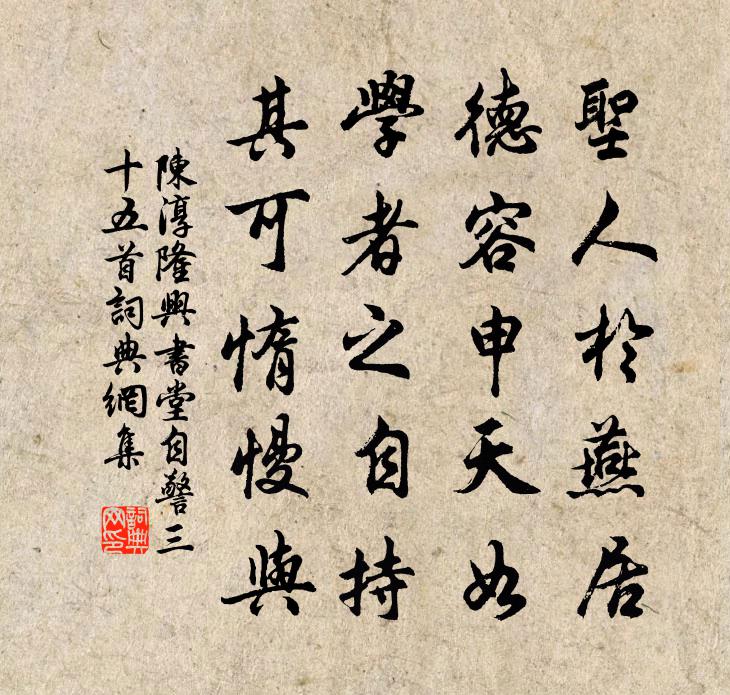 聖人於燕居
德容申天如
學者之自持
其可惰慢與
陳淳隆興書堂自警三
十五首詞典網集
詞典网印